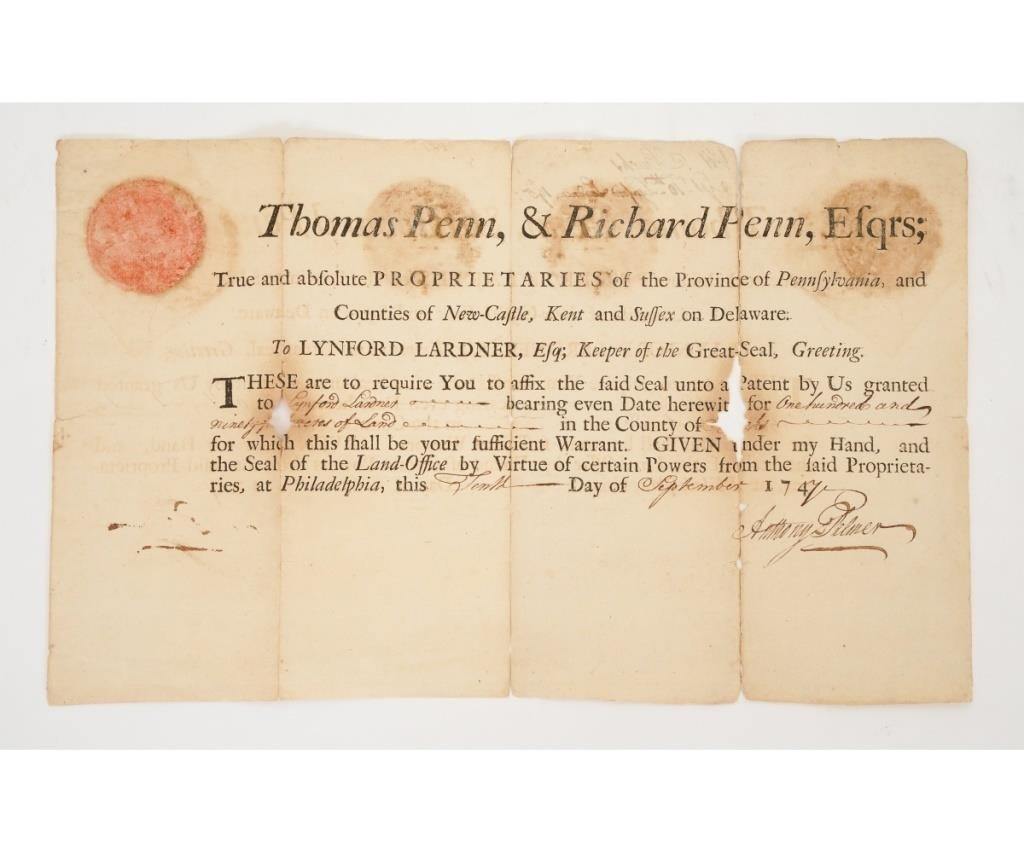 Thomas Penn, & Richard Penn, Eſqrs;
True and abſolute PROPRIETARIES of the Province of Pennſylvania, and
Counties of New-Caſtle, Kent and Suſſex on Delaware:
To LYNFORD LARDNER, Eſq; Keeper of the Great-Seal, Greeting.
THESE are to require You to affix the ſaid Seal unto a Patent by Us granted
to Lynford Lardner bearing even Date herewith for One hundred and
acres of Land in the County of
for which this ſhall be your ſufficient Warrant. GIVEN under my Hand, and
the Seal of the Land-Office by Virtue of certain Powers from the ſaid Proprieta-
ries, at Philadelphia, this Tenth Day of September 1747